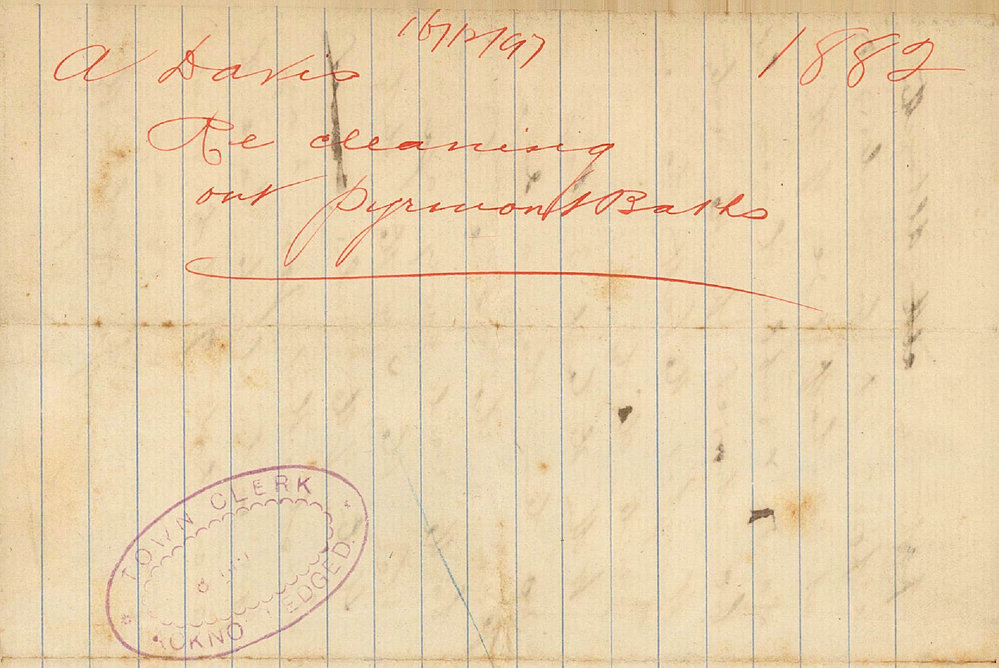 16/12/97
A Davis 1882
Re cleaning
out Pyrmont Baths
TOWN CLERK